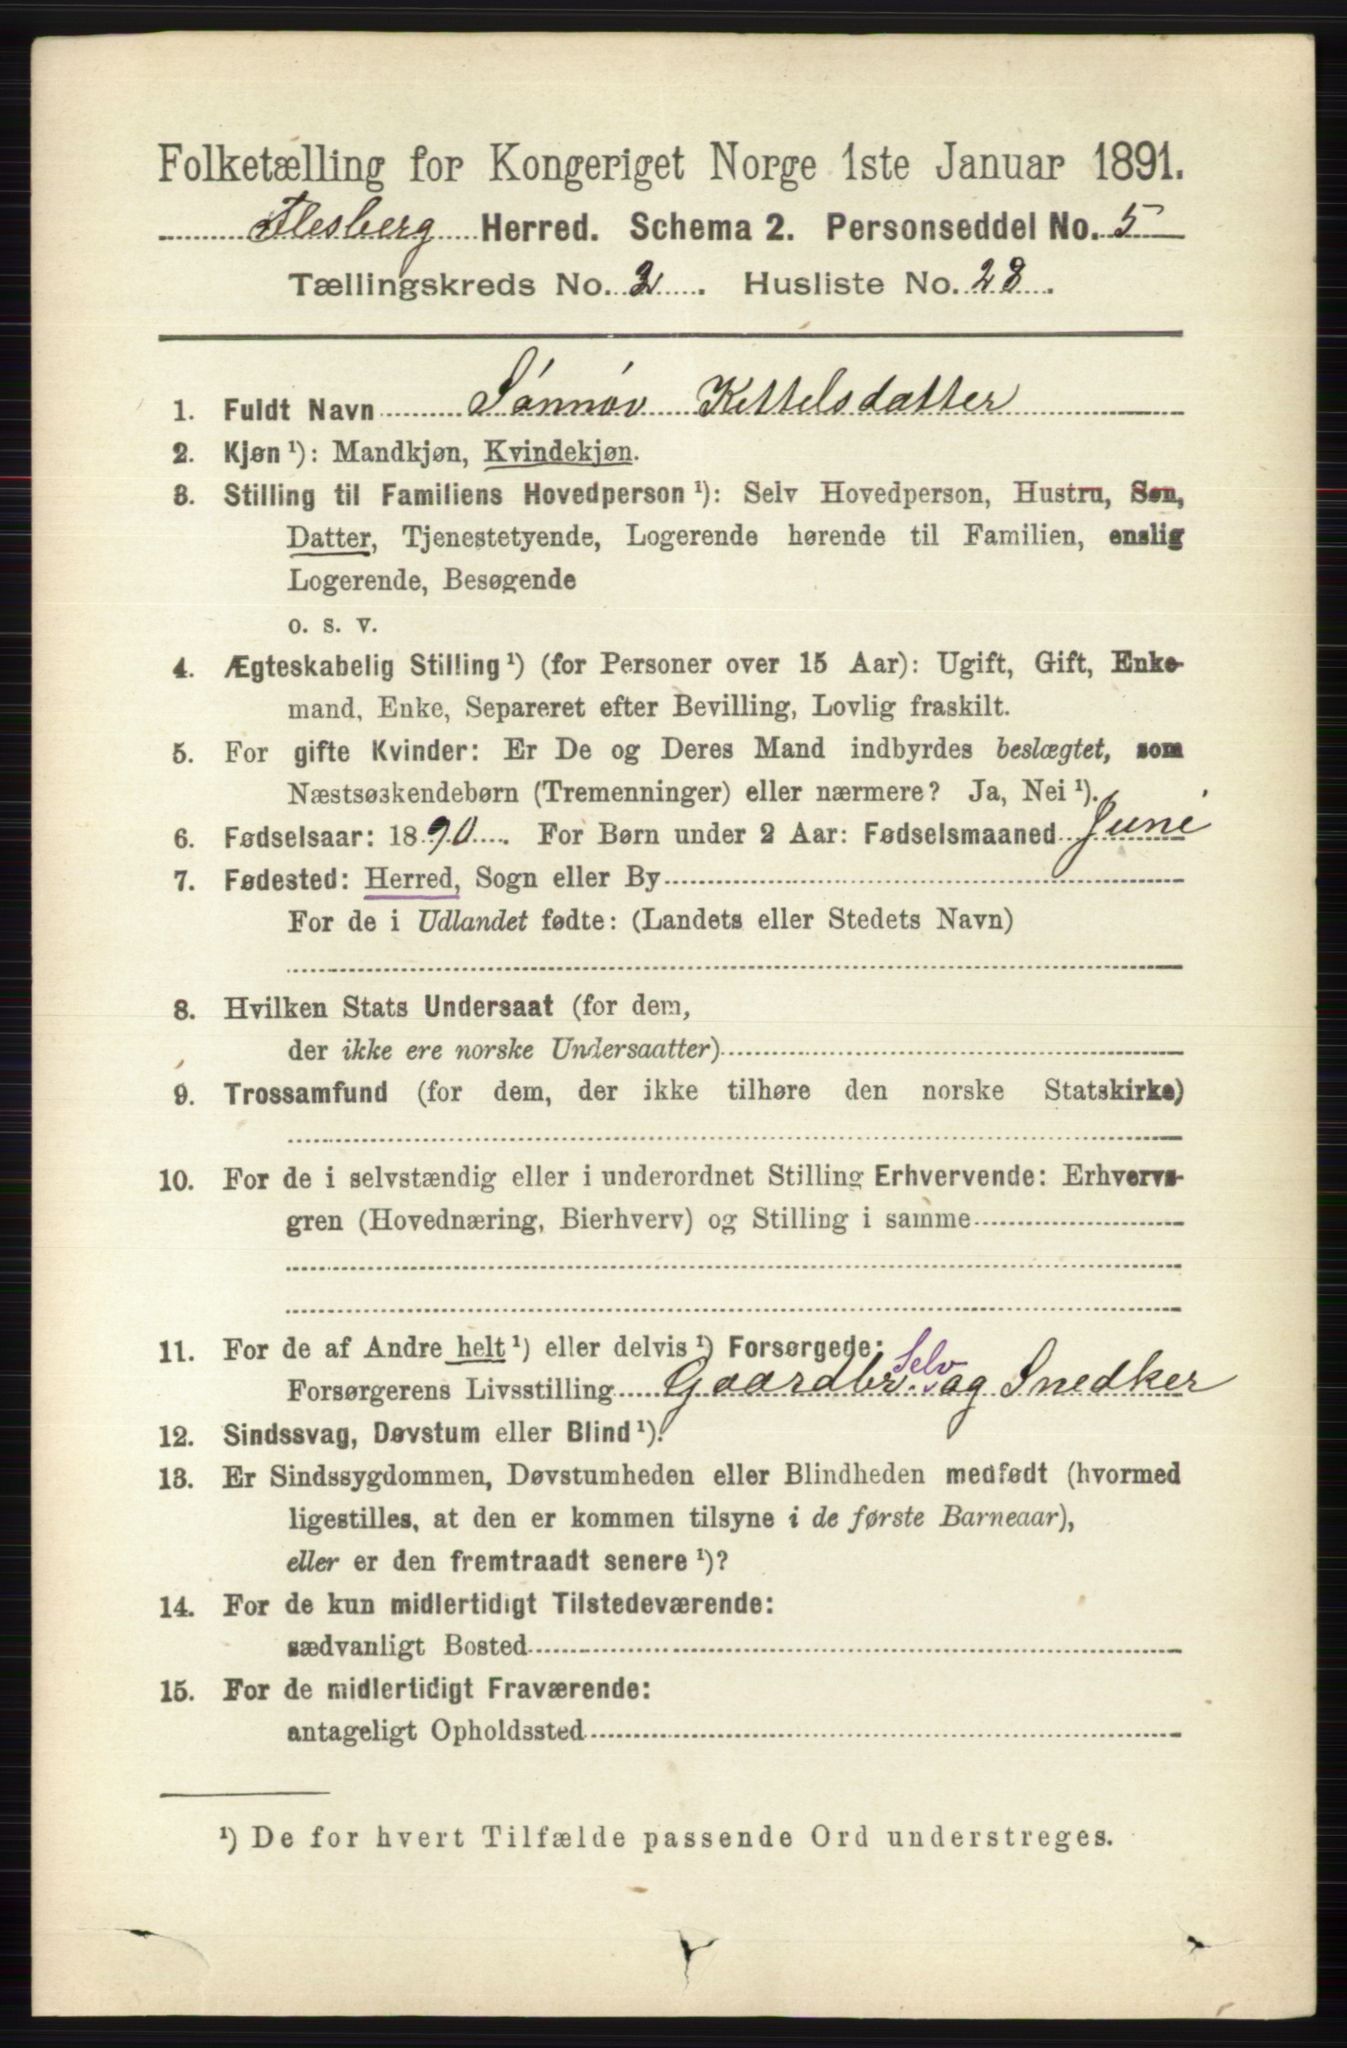 Folketælling for Kongeriget Norge 1ste Januar 1891.
Flesberg Herred. Schema 2. Personseddel No. 5
Tællingskreds No. 2. Husliste No. 28.
1. Fuldt Navn Sønnøv Kettelsdatter
2. Kjøn ¹): Mandkjøn, Kvindekjøn.
3. Stilling til Familiens Hovedperson ¹): Selv Hovedperson, Hustru, Søn,
Datter, Tjenestetyende, Logerende hørende til Familien, enslig
Logerende, Besøgende
o. s. v.
4. Ægteskabelig Stilling ¹) (for Personer over 15 Aar): Ugift, Gift, Enke-
mand, Enke, Separeret efter Bevilling, Lovlig fraskilt.
5. For gifte Kvinder: Er De og Deres Mand indbyrdes beslægtet, som
Næstsøskendebørn (Tremenninger) eller nærmere? Ja, Nei ¹).
6. Fødselsaar: 1890. For Børn under 2 Aar: Fødselsmaaned Juni
7. Fødested: Herred, Sogn eller By
For de i Udlandet fødte: (Landets eller Stedets Navn)
8. Hvilken Stats Undersaat (for dem,
der ikke ere norske Undersaatter)
9. Trossamfund (for dem, der ikke tilhøre den norske Statskirke)
10. For de i selvstændig eller i underordnet Stilling Erhvervende: Erhvervs-
gren (Hovednæring, Bierhverv) og Stilling i samme
11. For de af Andre helt ¹) eller delvis ¹) Forsørgede:
Selv
Forsørgerens Livsstilling Gaardbr. og Snedker
12. Sindssvag, Døvstum eller Blind ¹).
13. Er Sindssygdommen, Døvstumheden eller Blindheden medfødt (hvormed
ligestilles, at den er kommen tilsyne i de første Barneaar),
eller er den fremtraadt senere ¹)?
14. For de kun midlertidigt Tilstedeværende:
sædvanligt Bosted
15. For de midlertidigt Fraværende:
antageligt Opholdssted
¹) De for hvert Tilfælde passende Ord understreges.